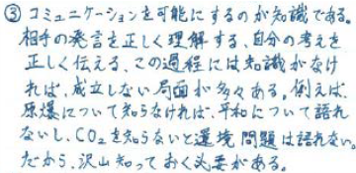 ③コミュニケーションを可能にするのが知識である。
相手の発言を正しく理解する、自分の考えを
正しく伝える、この過程には知識がなけ
れば、成立しない局面が多々ある。例えば、
原爆について知らなければ、平和について語れ
ないし、CO₂を知らないと環境問題は語れない。
だから、沢山知っておく必要がある。